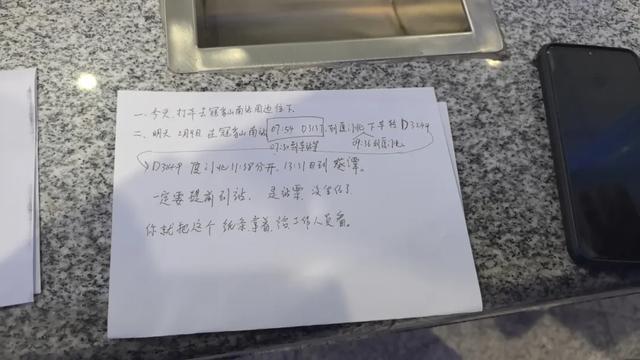 一、今天,打车去冠豸山南站周边住下
二、明天 2月9日 在冠豸山南站 07:54 D3137,到厦门北下车转D3249
07:30到车站 09:36到厦门北
D3249 厦门北11:38分开,13:31日到
一定要提前到站, 是站票,没坐位了
你就把这个纸条拿着,给工作人员看。